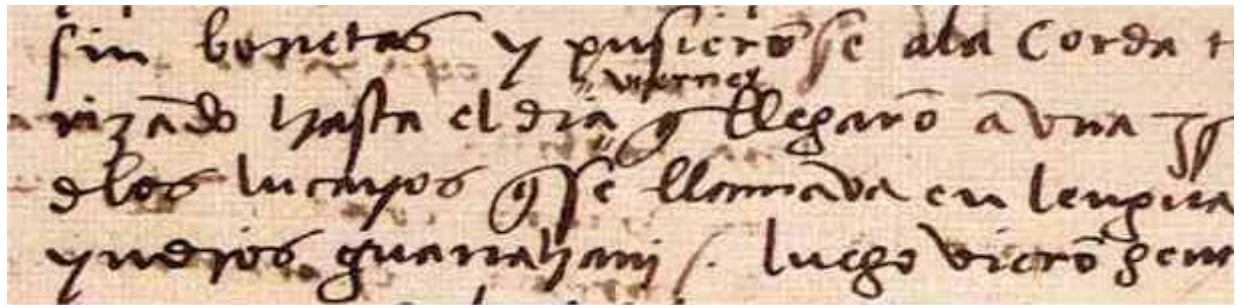 sin bonetas y pusierõse ala corda t
rizãdo hasta el dia viernes q̃ llegarõ a vna ysl
dlos lucayos q̃ se llamava en lengua
yndios guanahani / . luego vierõ gent